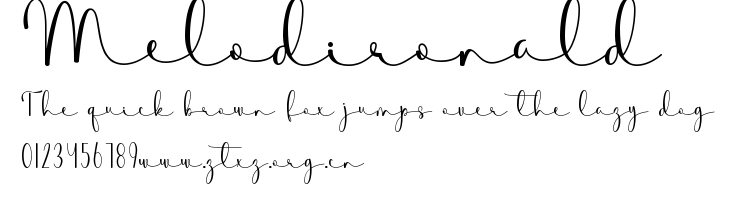 Melodironald
The quick brown fox jumps over the lazy dog
0123456789www.ztxz.org.cn